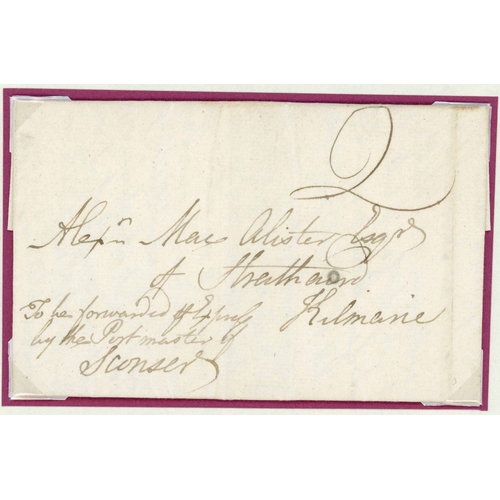 2
Alexr. Mac Alister Esqr
of Strathaird
Kilmarie
To be forwarded pr Express
by the Post master of
Sconser